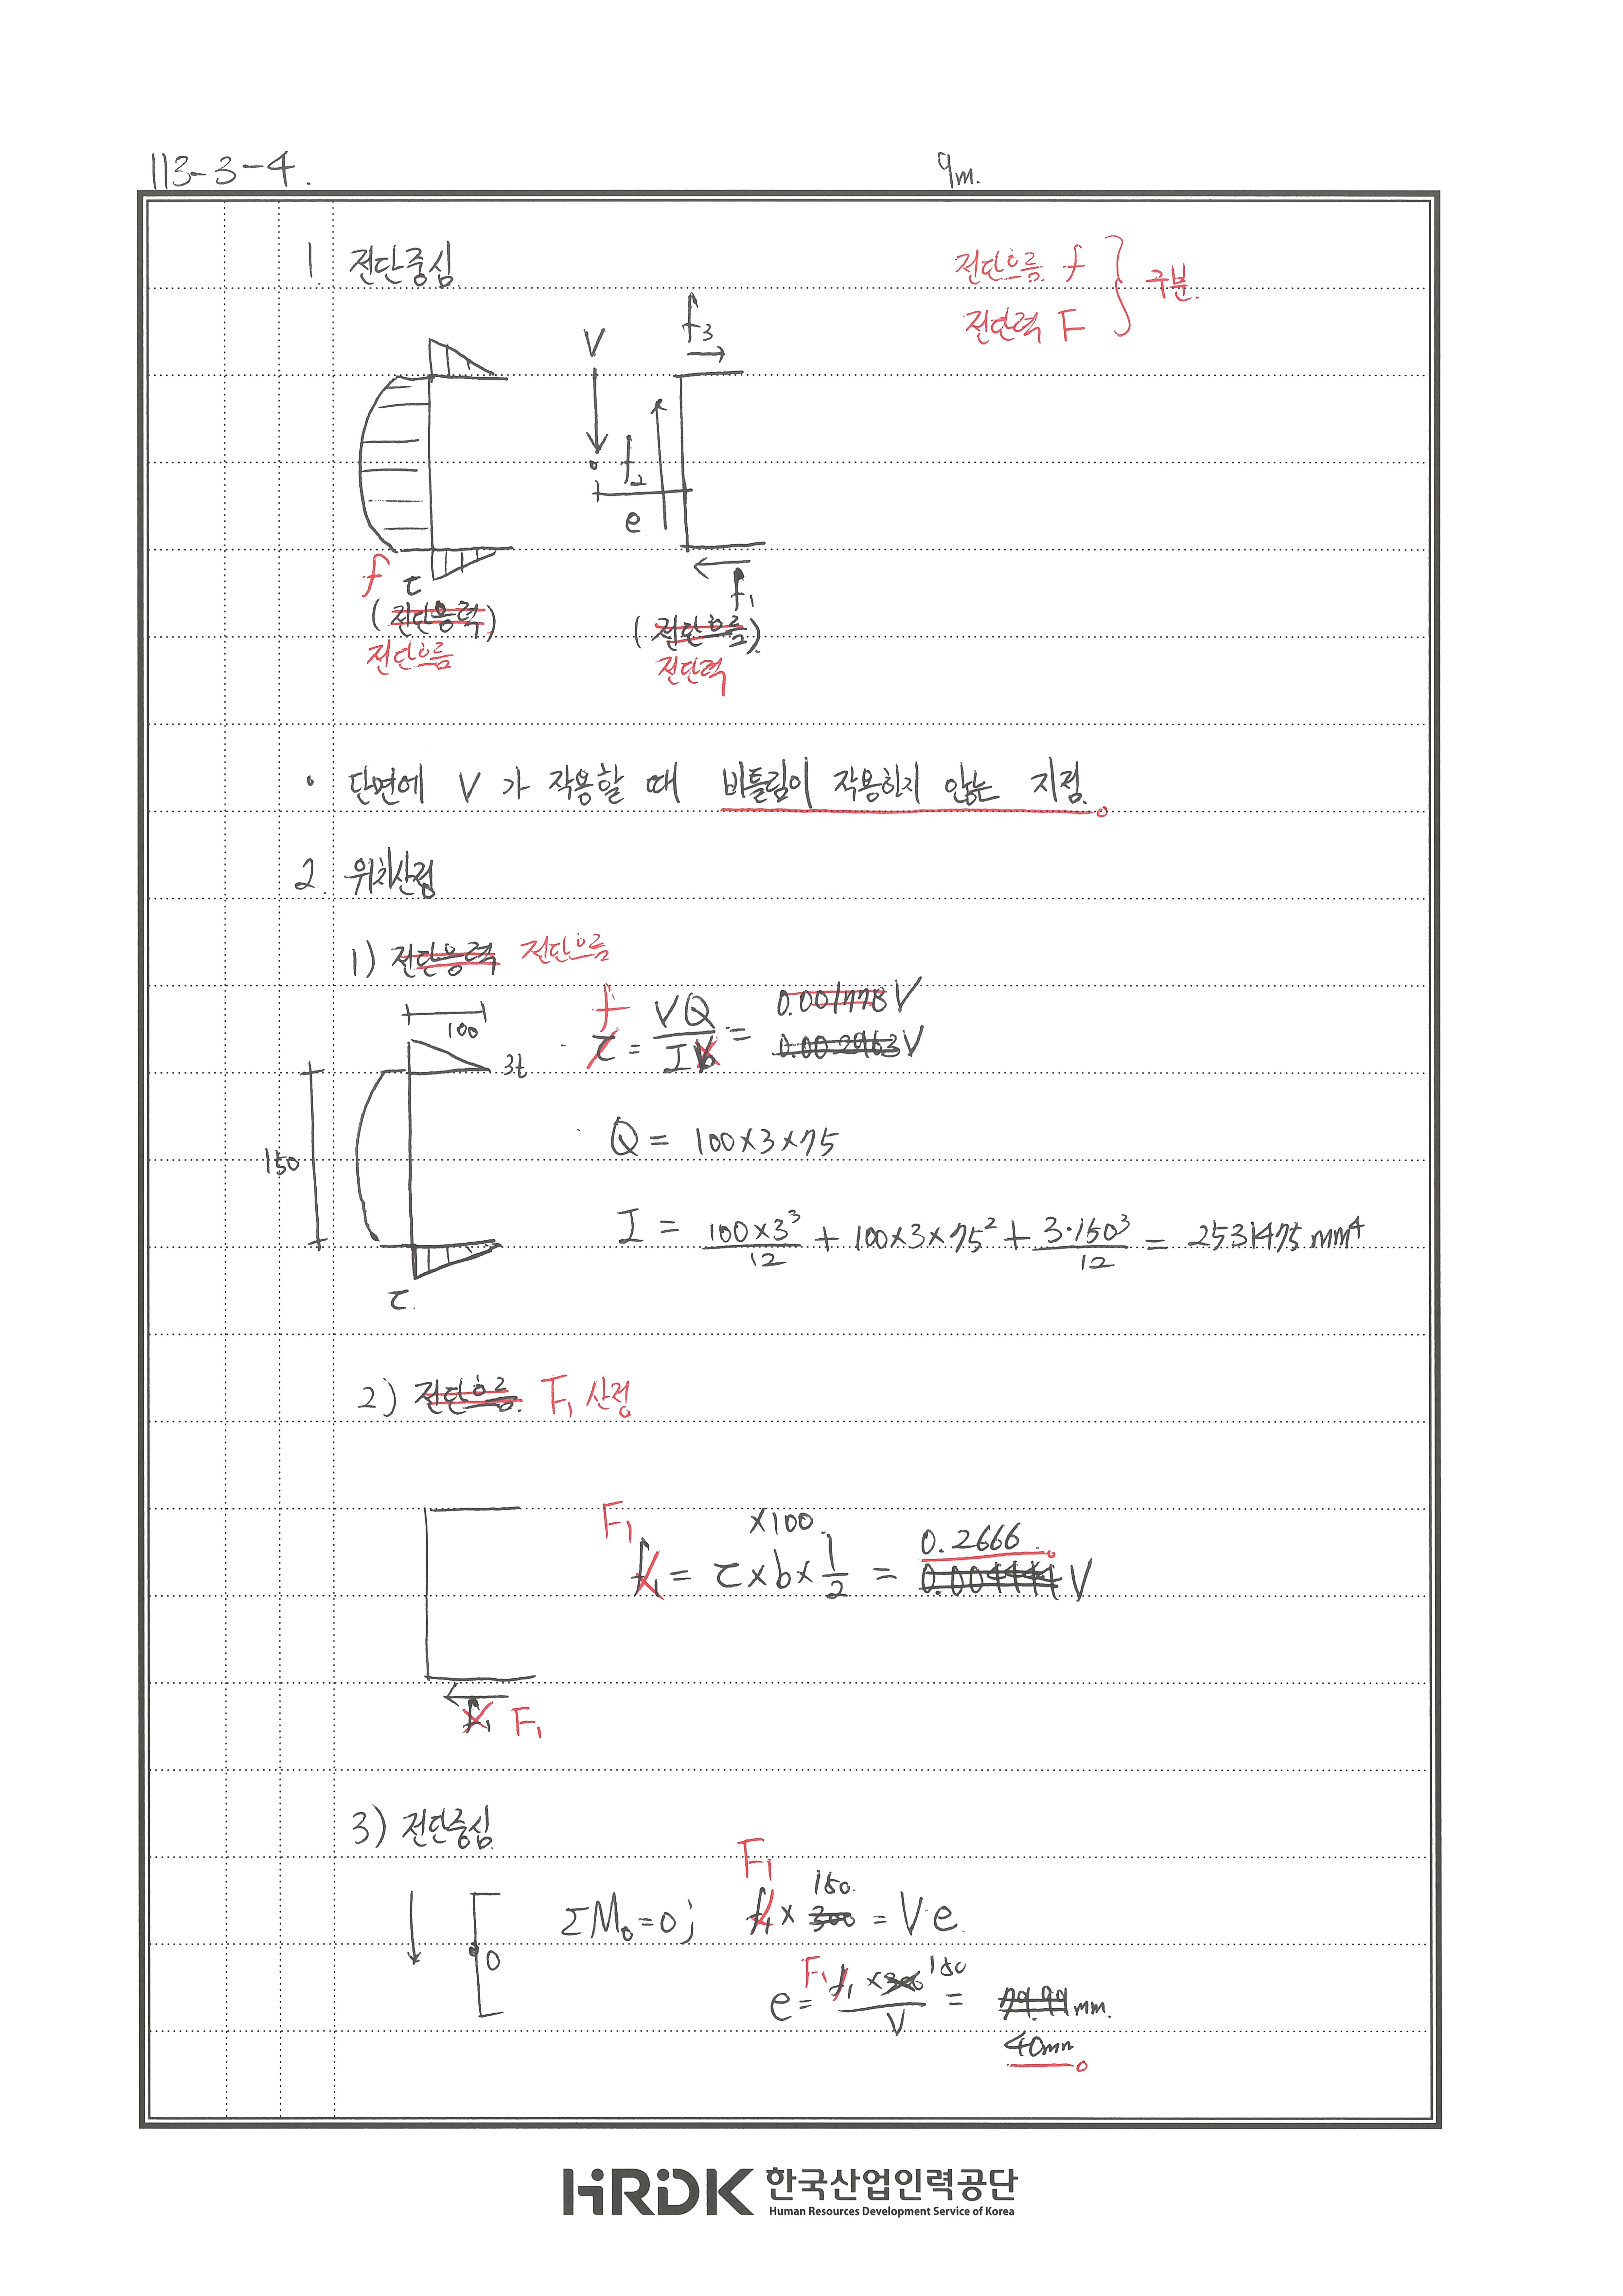 113-3-4.
9m.
1. 전단중심
전단흐름 f
전단력 F
구분.
V
f3
f2
e
f1
f
τ
(전단응력)
전단흐름
(전단흐름)
전단력
• 단면에 V가 작용할 때 비틀림이 작용하지 않는 지점.
2. 위치산정
1) 전단응력 전단흐름
100
3t
150
τ.
f
τ = VQ / Ib = 0.001778 V
0.002963 V
Q = 100×3×75
I = 100×3³/12 + 100×3×75² + 3·150³/12 = 2531475 mm⁴
2) 전단흐름. F1 산정
F1
×100.
f1 = τ×b×1/2 = 0.2666
0.004444 V
f1 F1
3) 전단중심
F1
150.
ΣM0=0; f1 × 300 = Ve.
0
e = F1 f1 ×300 150 / V = 79.99 mm.
40mm
HRDK 한국산업인력공단
Human Resources Development Service of Korea